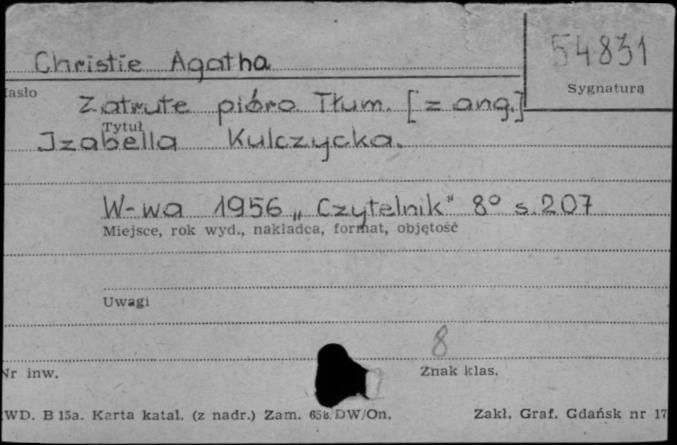 Christie Agatha
54831
Sygnatura
Zatrute pióro Tłum. [z ang.]
Tytuł
Izabella Kulczycka.
W-wa 1956 „Czytelnik" 8° s. 207
Miejsce, rok wyd., nakładca, format, objętość
Uwagi
8
Nr inw.
Znak klas.
WD. B 15a. Karta katal. (z nadr.) Zam. 658. DW/On.
Zakł. Graf. Gdańsk nr 17